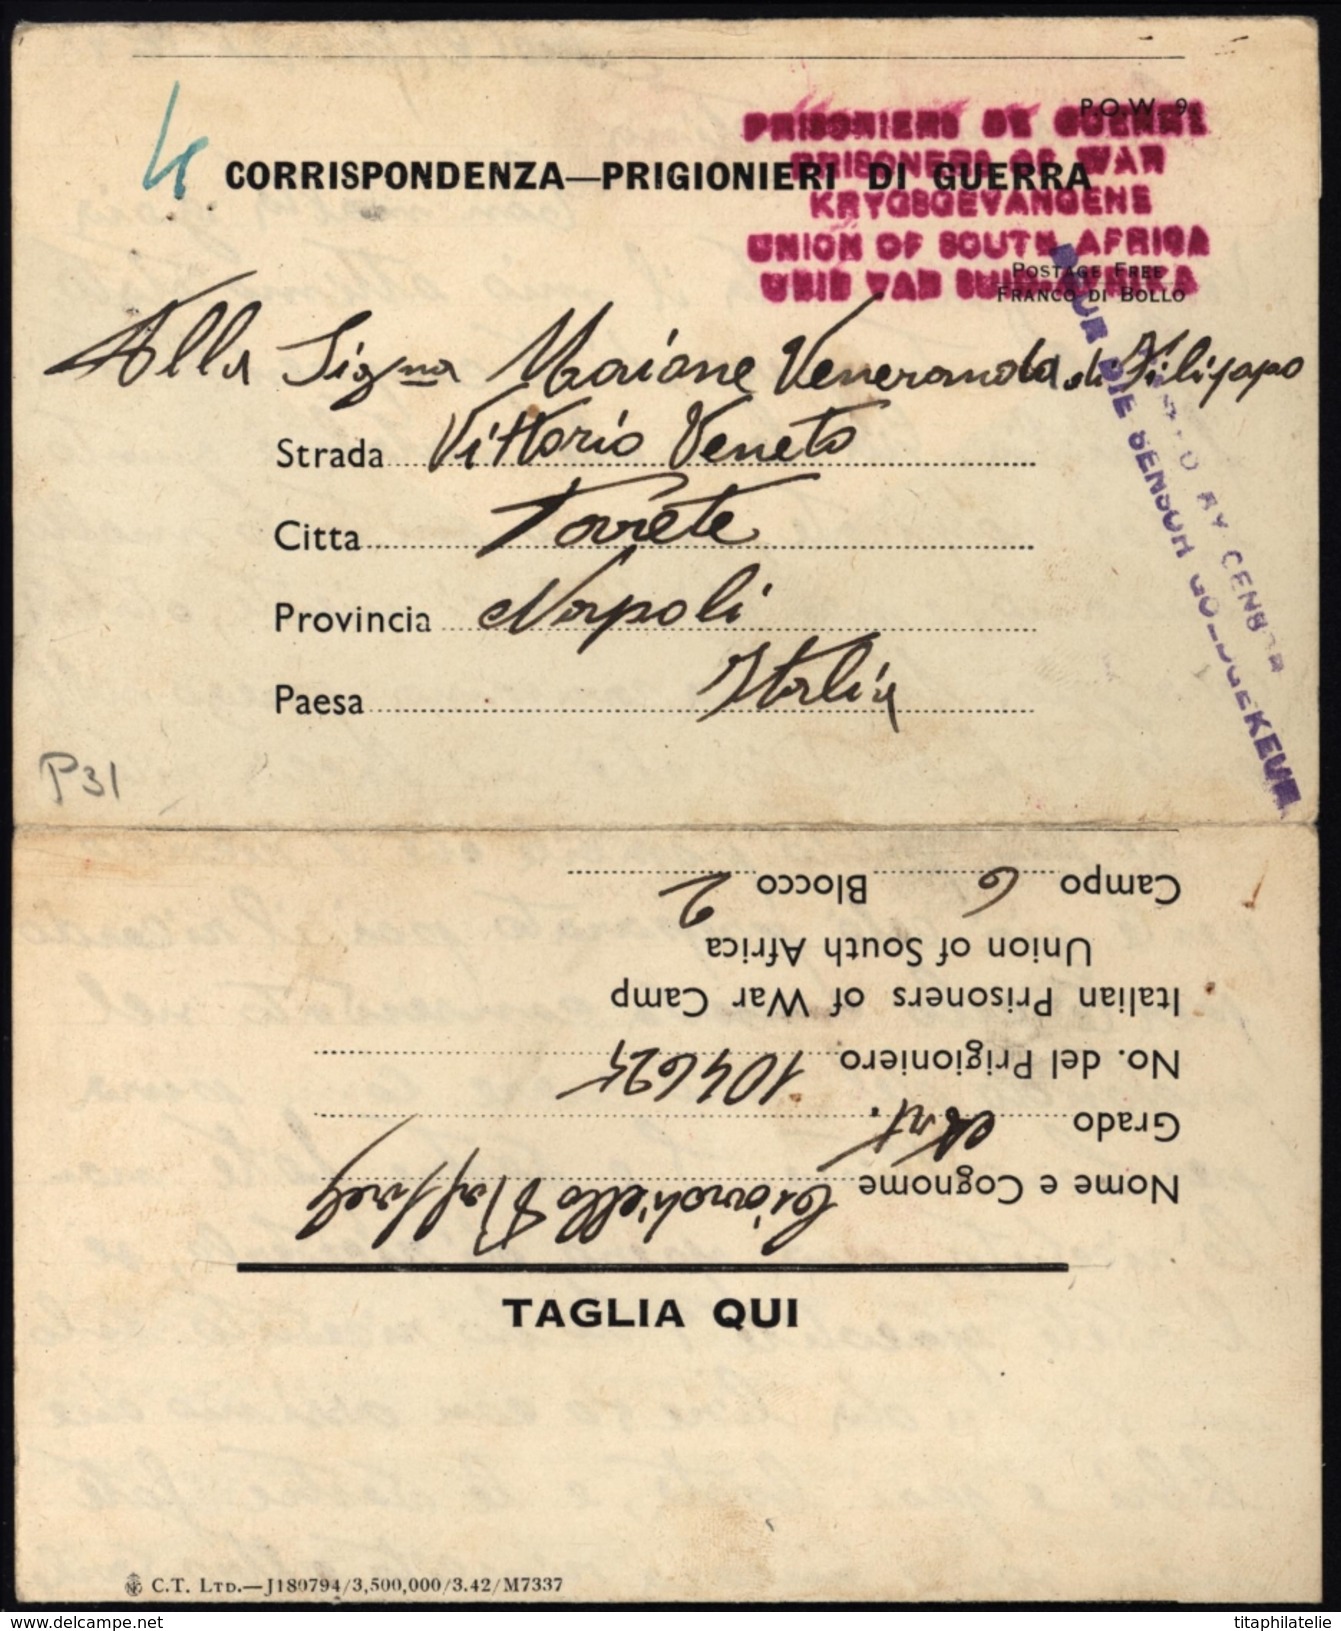 P.O.W. 9
4
PRISONIERS DE GUERRE
PRISONERS OF WAR
KRYGSGEVANGENE
UNION OF SOUTH AFRICA
UNIE VAN SUID-AFRIKA
CORRISPONDENZA—PRIGIONIERI DI GUERRA
POSTAGE FREE
FRANCO DI BOLLO
Alla Signa Maione Veneranda di Filippo
Strada Vittorio Veneto
Citta Torrete
Provincia Napoli
Paesa Italia
BY CENSOR
DEUR DIE SENSOR GOEDGEKEUR
P31
Campo 6 Blocco 2
Union of South Africa
Italian Prisoners of War Camp
No. del Prigioniero 104625
Grado Art.
Nome e Cognome
TAGLIA QUI
C.T. LTD.—J180794/3,500,000/3.42/M7337
www.delcampe.net
titaphilatelie